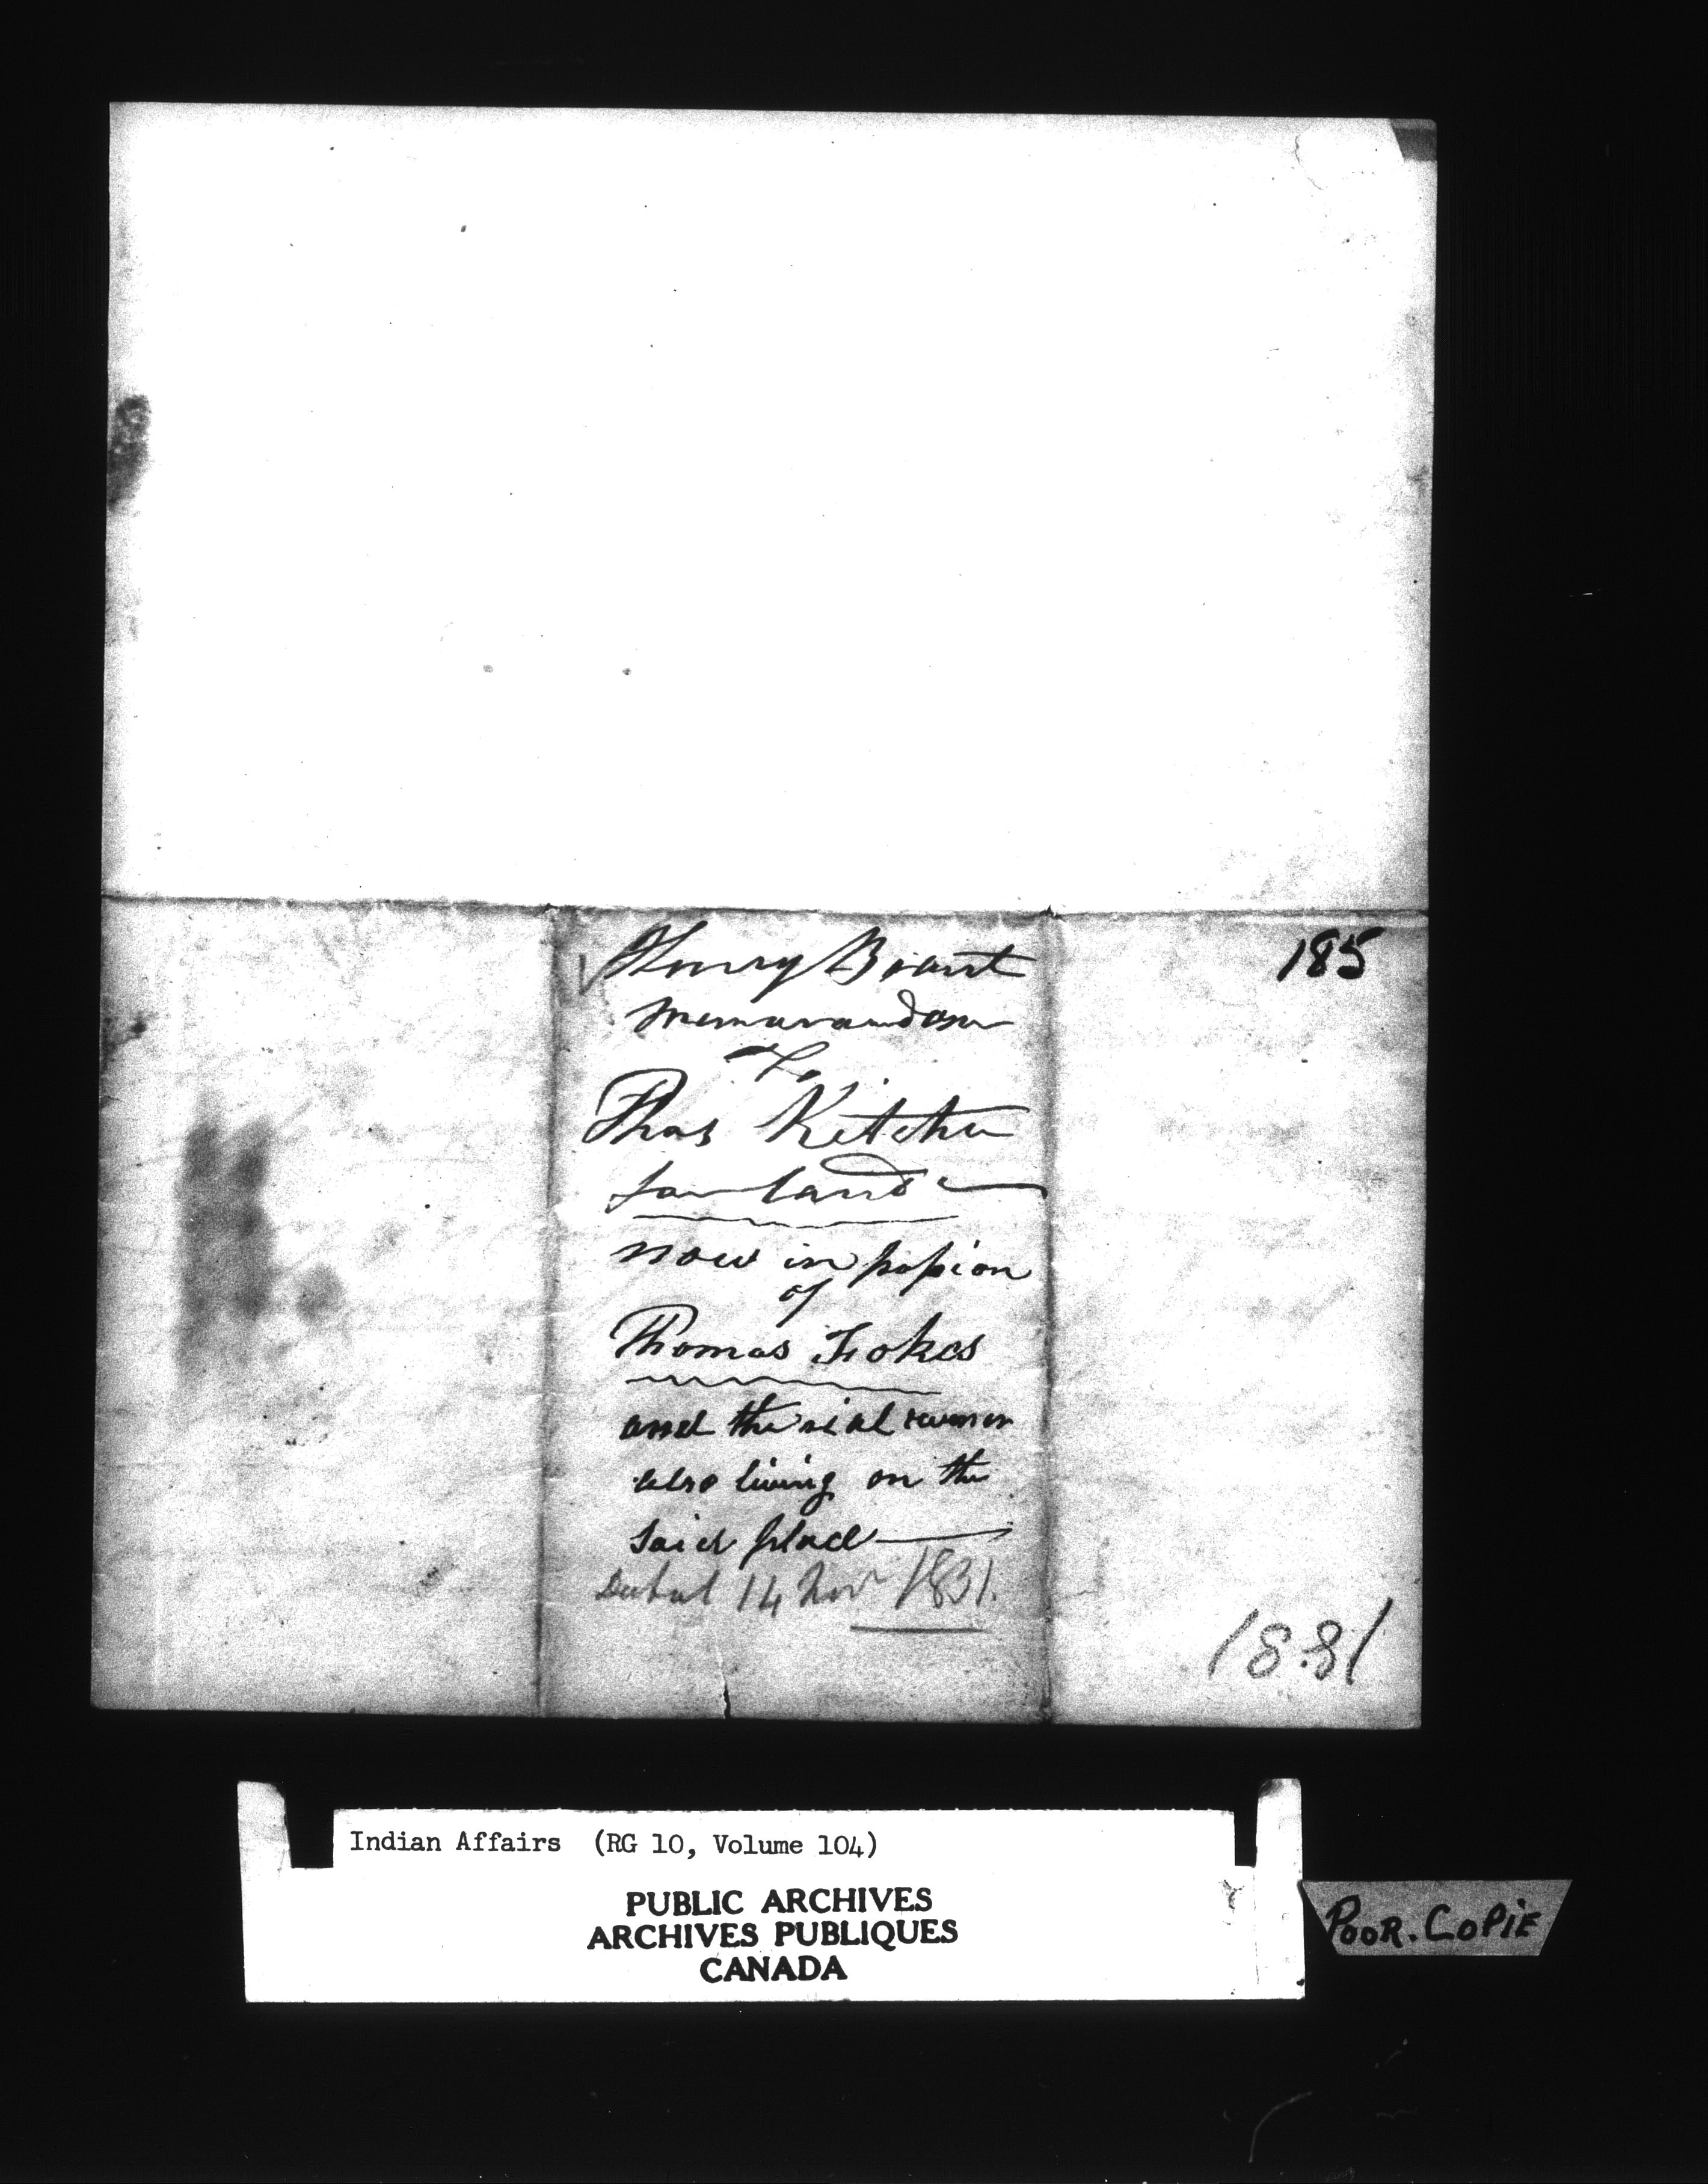 Henry Brant
memarandom
To
Thos Kitchn
for land
now in possion
of
Thomas Fokes
and the rial owner
also living on the
said place
Dated 14 Novr 1831.
185
1831
Indian Affairs (RG 10, Volume 104)
PUBLIC ARCHIVES
ARCHIVES PUBLIQUES
CANADA
POOR. COPiE